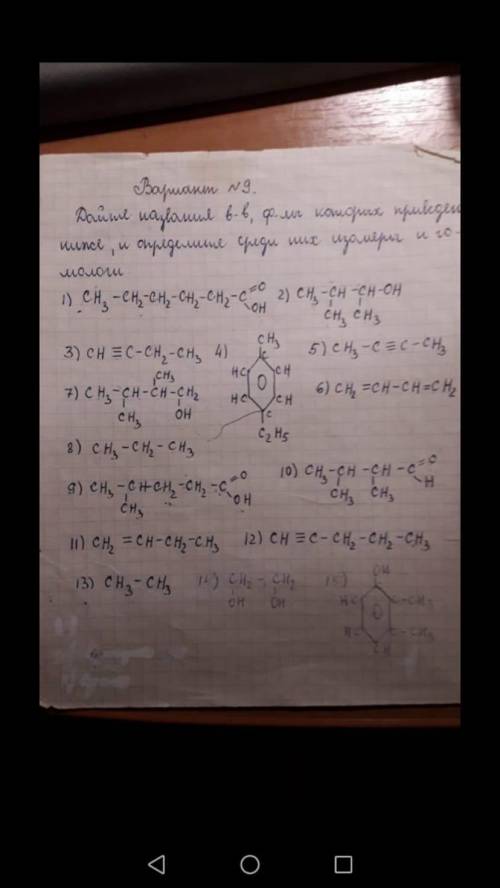 Вариант №9.
Дайте названия в-в, ф-лы которых приведен
ниже, и определите среди них изомеры и го-
мологи
1) CH3 -CH2-CH2-CH2-CH2-C=O OH 2) CH3-CH -CH-OH
CH3 CH3
3) CH ≡C-CH2-CH3 4) CH3 C HC CH HC CH C C2H5 5) CH3 -C ≡C -CH3
7) CH3-CH-CH-CH2 6) CH2 =CH-CH=CH2
CH3 CH3 OH
8) CH3 -CH2 -CH3
9) CH3 -CH-CH2 -CH2 -C=O OH 10) CH3 -CH -CH -C=O H
CH3 CH3 CH3
11) CH2 =CH-CH2-CH3 12) CH ≡C- CH2 -CH2 -CH3
13) CH3 -CH3 14) CH2 - CH2 15) OH
OH OH HC C-CH3
HC C-CH3
CH